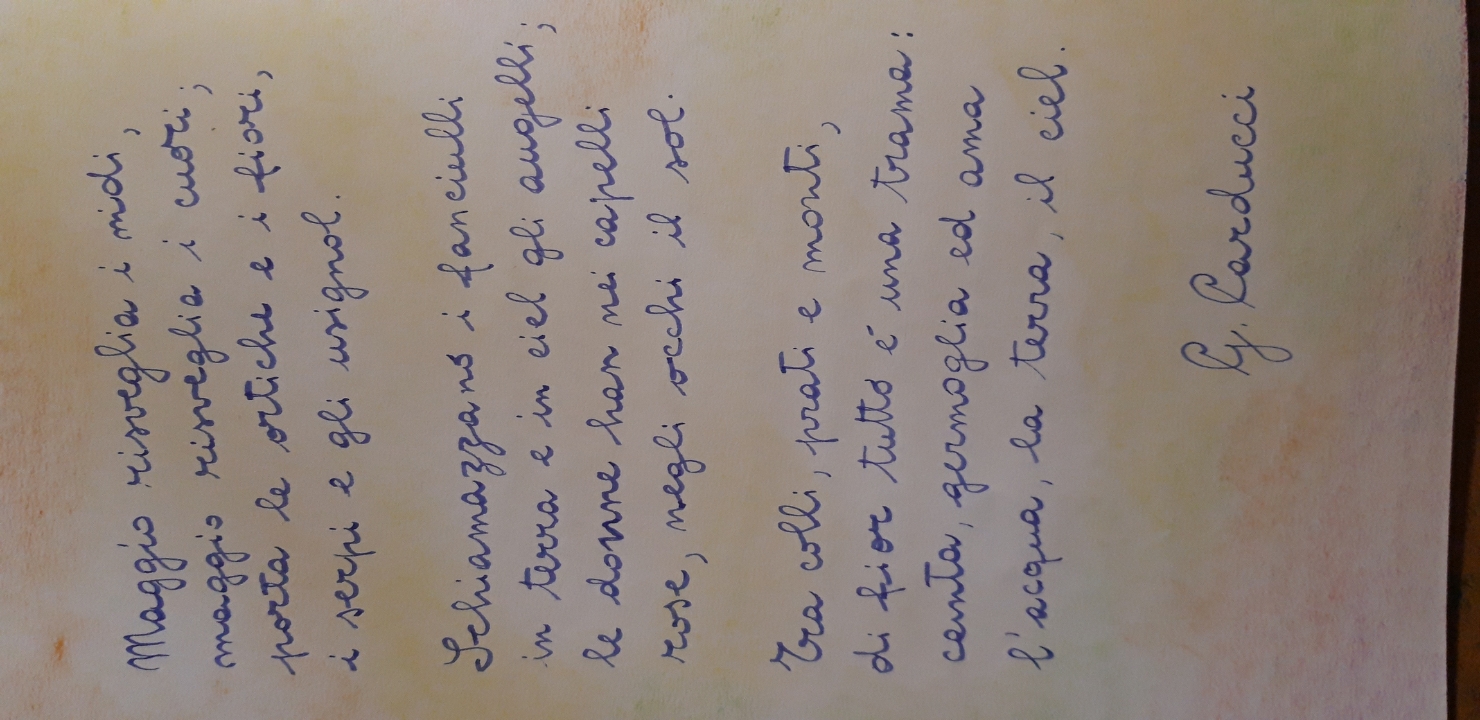 Maggio risveglia i nidi,
maggio risveglia i cuori;
porta le ortiche e i fiori,
i serpi e gli usignol.
Schiamazzano i fanciulli
in terra e in ciel gli augelli;
le donne han nei capelli
rose, negli occhi il sol.
Tra colli, prati e monti,
di fior tutto é una trama:
canta, germoglia ed ama
l'acqua, la terra, il ciel.
G. Carducci